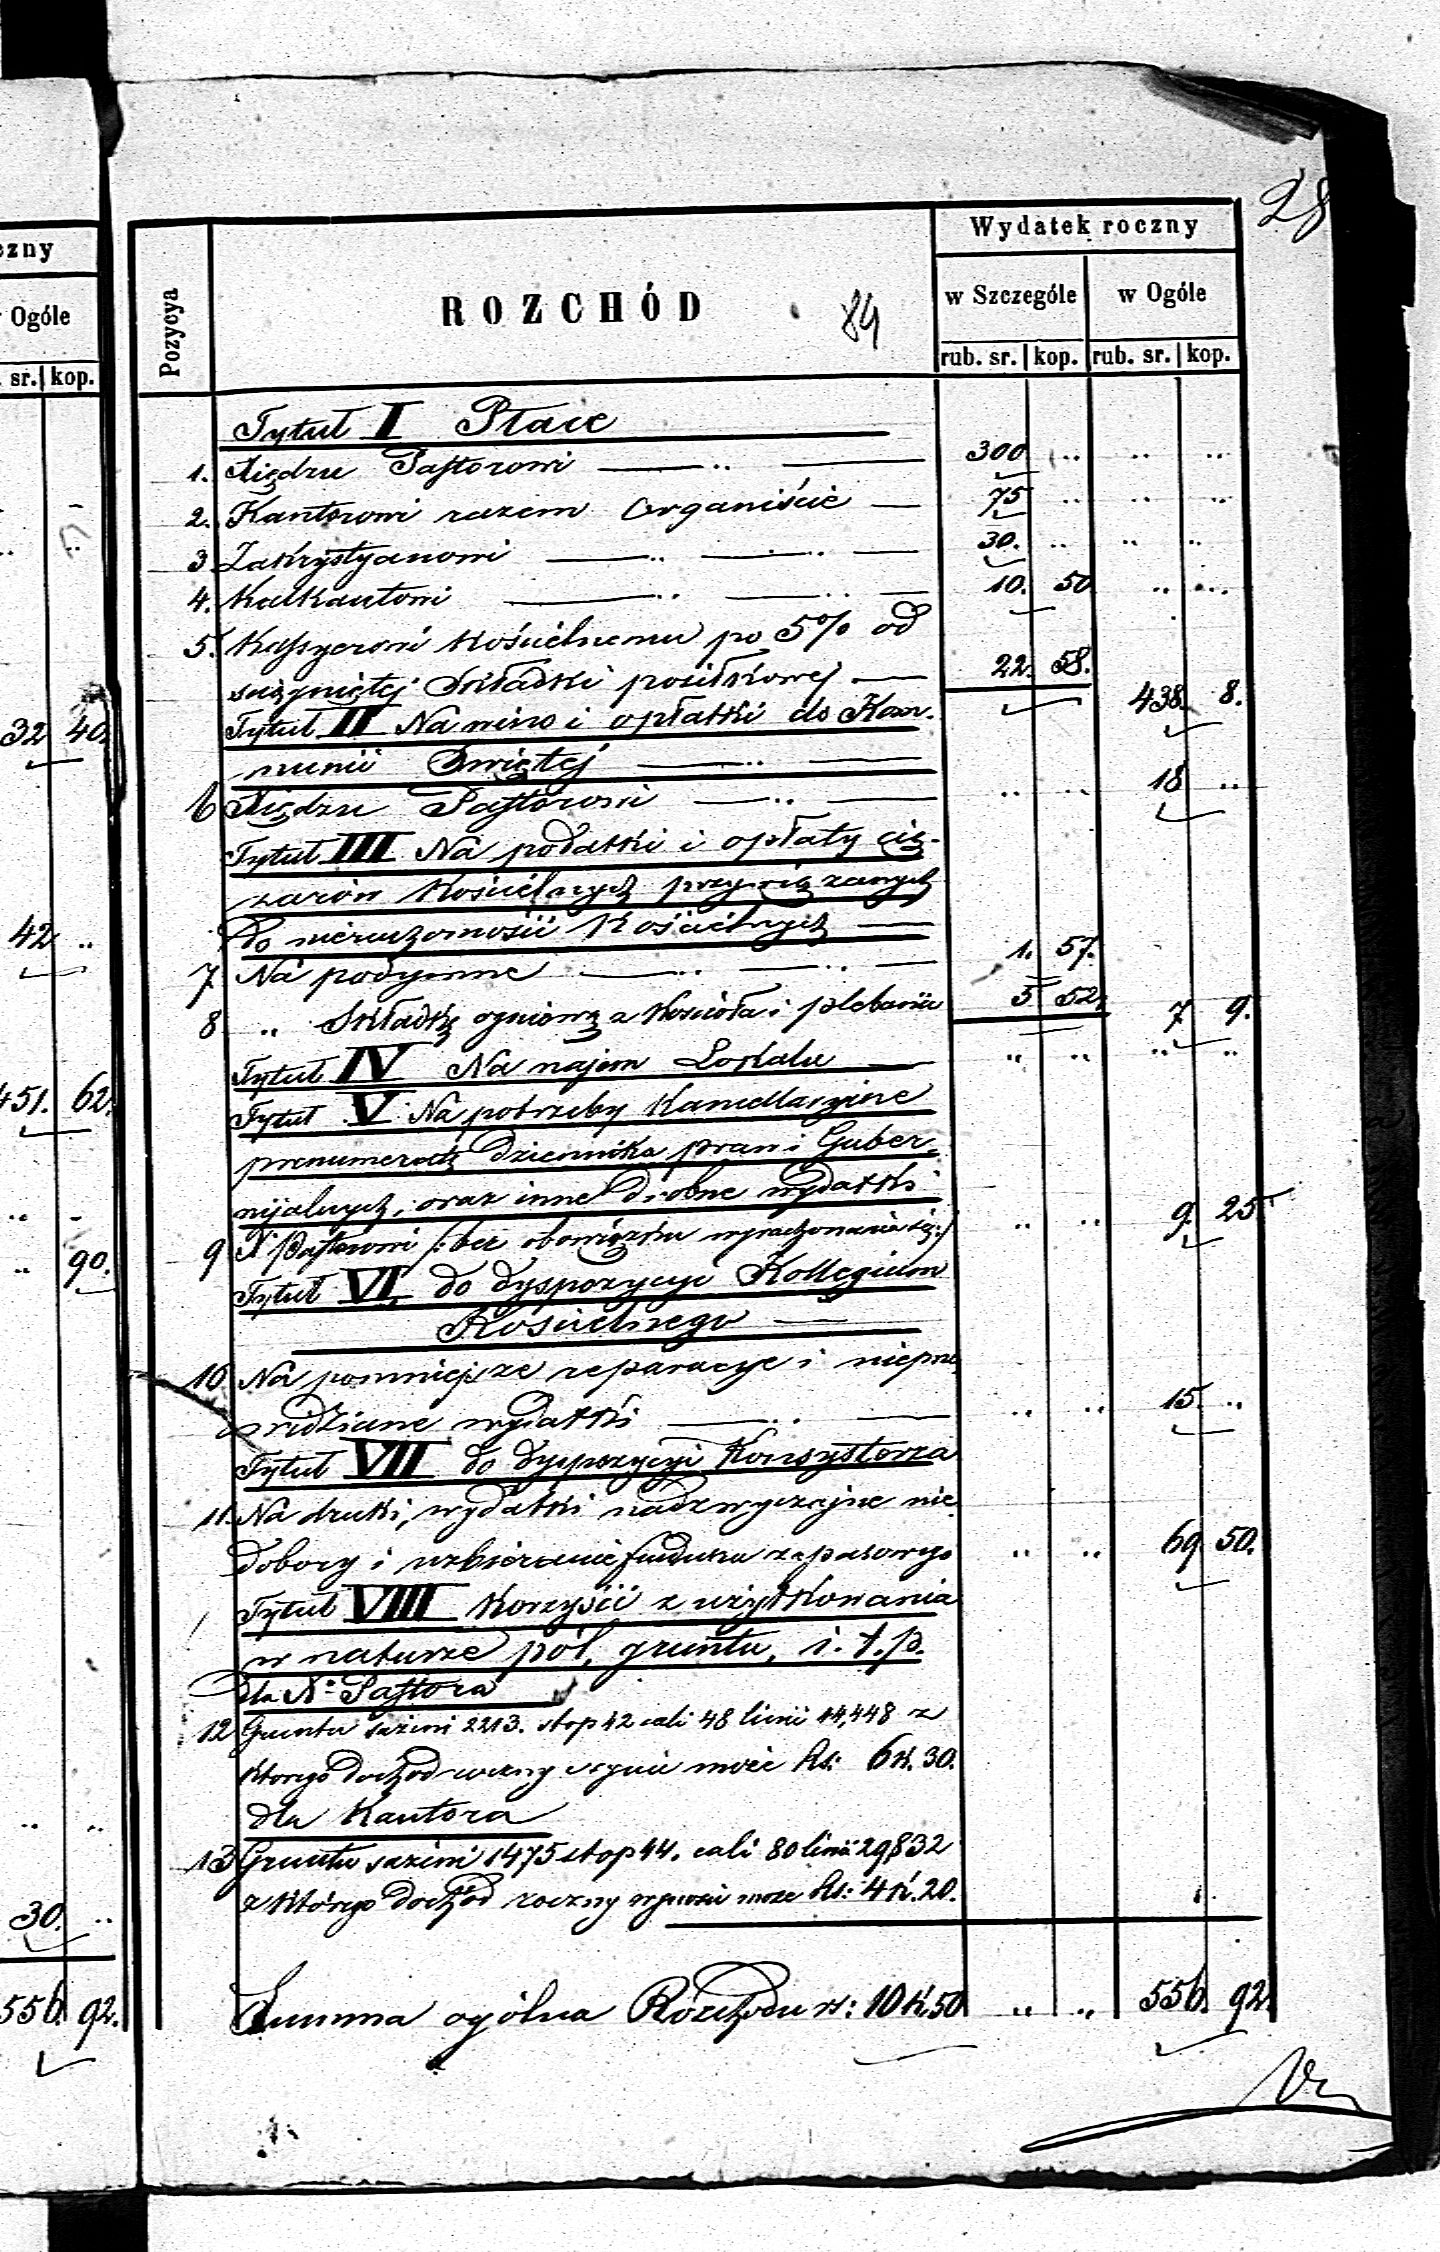 czny
Ogóle
sr. kop.
32 40.
42 ..
451. 62.
.. 90.
30. ..
556. 92.
28
Pozycya
ROZCHÓD
84
Wydatek roczny
w Szczególe w Ogóle
rub. sr. kop. rub. sr. kop.
Tytuł I Płace
1. Xiędzu Pastorowi — .. — 300 .. .. ..
2. Kantorowi razem Organiście — 75 .. .. ..
3. Zakrystyanowi — .. — .. — 30. .. .. ..
4. Kalkantowi — .. — .. — 10. 50 .. ..
5. Kassyerowi Kościelnemu po 5% od
ściągniętej Składki posiłkowej — 22. 58. 438. 8.
Tytuł II Na wino i opłatki do Kom-
munii Świętej — .. —
6 Xiędzu Pastorowi — .. — .. .. 18 ..
Tytuł III Na podatki i opłaty cię-
żarów Kościelnych przywiązanych
do nieruchomości Kościelnych —
7 Na podymne — .. — .. — 1. 57.
8 .. Składkę ogniową z Kościoła i plebanii 5 52. 7 9.
Tytuł IV Na najem Lokalu — .. .. .. ..
Tytuł V Na potrzeby Kancellaryjne
prenumeratę Dziennika praw i Guber-
nijalnych, oraz inne drobne wydatki
9 X. Pastorowi /: bez obowiązku wyrachowania się :/ .. .. 9. 25
Tytuł VI, do dyspozycyi Kollegium
Kościelnego —
10 Na pomniejsze reparacye i nieprze
widziane wydatki — .. — .. .. 15. ..
Tytuł VII do dyspozycyi Konsystorza
11. Na druki, wydatki nadzwyczajne nie
dobory i uzbieranie funduszu zapasowego .. .. 69 50.
Tytuł VIII Korzyści z użytkowania
w naturze pól, gruntu, i. t. p.
dla X. Pastora
12 Gruntu sążeni 2213. stop 42 cali 48 linii 14,448 z
ktorego dochod roczny czynić może Rs: 6 K. 30.
dla Kantora
13 Gruntu sążeni 1475 stop 44. cali 80 linii 29,832
z którego dochód roczny wynosić może Rs: 4 K. 20.
Summa ogólna Rozchodu rs: 10 K. 50 .. .. 556. 92.